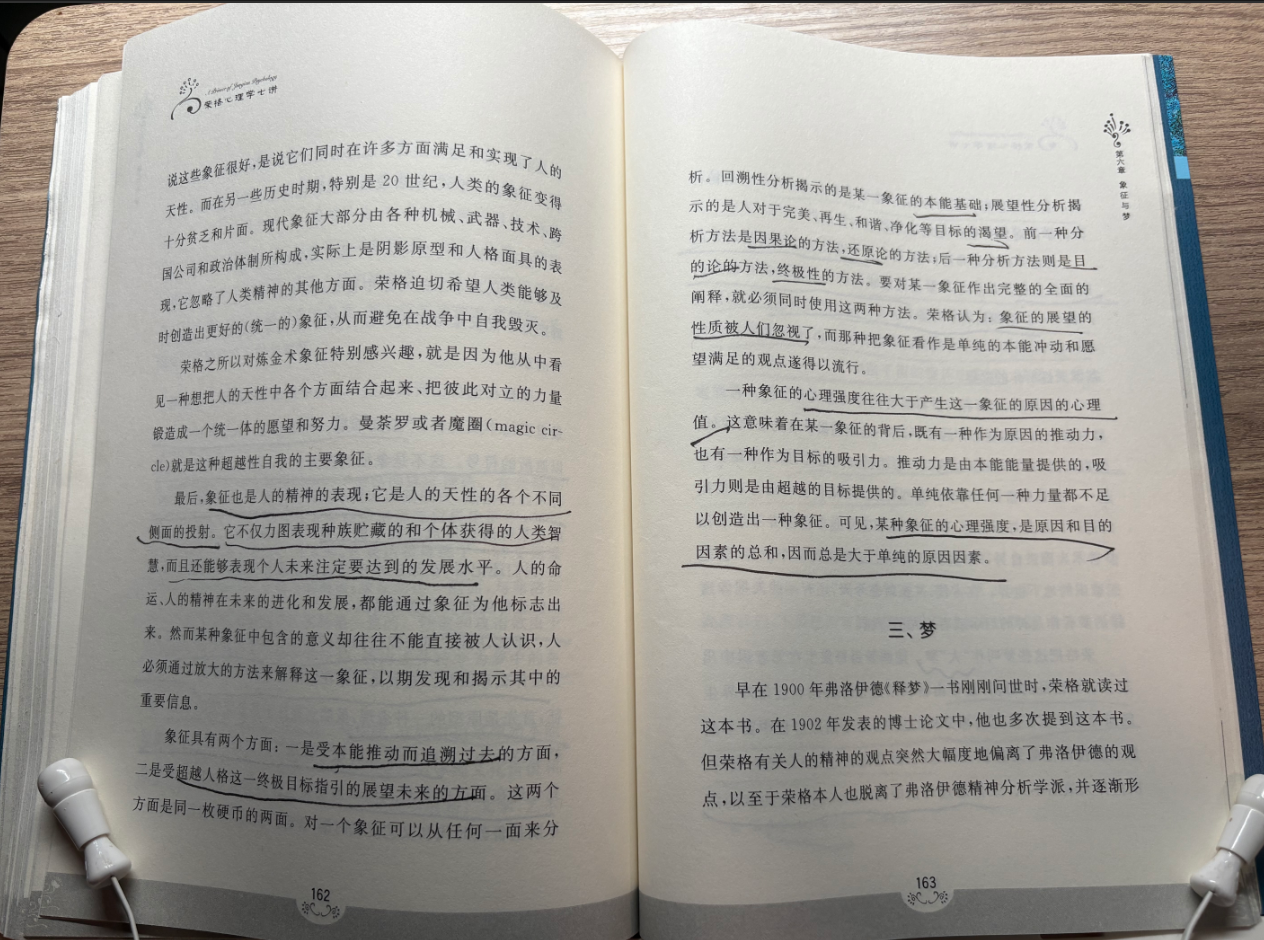 A Primer of Jungian Psychology
荣格心理学七讲
说这些象征很好,是说它们同时在许多方面满足和实现了人的
天性。而在另一些历史时期,特别是 20 世纪,人类的象征变得
十分贫乏和片面。现代象征大部分由各种机械、武器、技术、跨
国公司和政治体制所构成,实际上是阴影原型和人格面具的表
现,它忽略了人类精神的其他方面。荣格迫切希望人类能够及
时创造出更好的(统一的)象征,从而避免在战争中自我毁灭。
荣格之所以对炼金术象征特别感兴趣,就是因为他从中看
见一种想把人的天性中各个方面结合起来、把彼此对立的力量
锻造成一个统一体的愿望和努力。曼荼罗或者魔圈(magic cir-
cle)就是这种超越性自我的主要象征。
最后,象征也是人的精神的表现;它是人的天性的各个不同
侧面的投射。它不仅力图表现种族贮藏的和个体获得的人类智
慧,而且还能够表现个人未来注定要达到的发展水平。人的命
运、人的精神在未来的进化和发展,都能通过象征为他标志出
来。然而某种象征中包含的意义却往往不能直接被人认识,人
必须通过放大的方法来解释这一象征,以期发现和揭示其中的
重要信息。
象征具有两个方面:一是受本能推动而追溯过去的方面,
二是受超越人格这一终极目标指引的展望未来的方面。这两个
方面是同一枚硬币的两面。对一个象征可以从任何一面来分
162
第六章 象征与梦
析。回溯性分析揭示的是某一象征的本能基础;展望性分析揭
示的是人对于完美、再生、和谐、净化等目标的渴望。前一种分
析方法是因果论的方法,还原论的方法;后一种分析方法则是目
的论的方法,终极性的方法。要对某一象征作出完整的全面的
阐释,就必须同时使用这两种方法。荣格认为:象征的展望的
性质被人们忽视了,而那种把象征看作是单纯的本能冲动和愿
望满足的观点遂得以流行。
一种象征的心理强度往往大于产生这一象征的原因的心理
值。这意味着在某一象征的背后,既有一种作为原因的推动力,
也有一种作为目标的吸引力。推动力是由本能能量提供的,吸
引力则是由超越的目标提供的。单纯依靠任何一种力量都不足
以创造出一种象征。可见,某种象征的心理强度,是原因和目的
因素的总和,因而总是大于单纯的原因因素。
三、梦
早在 1900 年弗洛伊德《释梦》一书刚刚问世时,荣格就读过
这本书。在 1902 年发表的博士论文中,他也多次提到这本书。
但荣格有关人的精神的观点突然大幅度地偏离了弗洛伊德的观
点,以至于荣格本人也脱离了弗洛伊德精神分析学派,并逐渐形
163